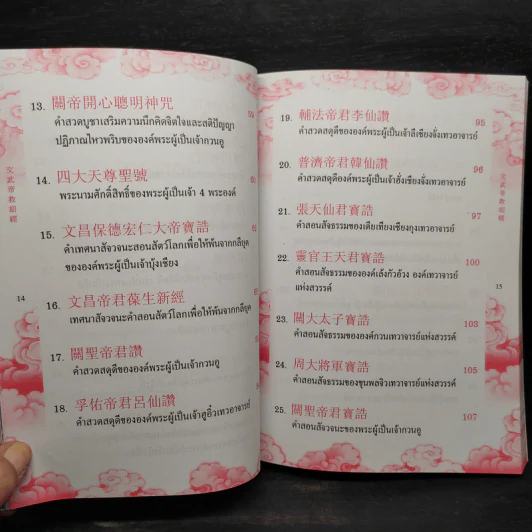 13. 關帝開心聰明神咒
คำสวดบูชาเสริมความนึกคิดจิตใจและสติปัญญา
ปฏิภาณไหวพริบขององค์พระผู้เป็นเจ้ากวนอู
14. 四大天尊聖號
พระนามศักดิ์สิทธิ์ของพระผู้เป็นเจ้า 4 พระองค์
15. 文昌保德宏仁大帝寶誥
คำเทศนาสัจวจนะสอนสัตว์โลกเพื่อให้พ้นจากกลียุค
ขององค์พระผู้เป็นเจ้าบุ้งเชียง
16. 文昌帝君葆生新經
เทศนาสัจวจนะคำสอนสัตว์โลกเพื่อให้พ้นจากกลียุค
17. 關聖帝君讚
คำสวดสดุดีขององค์พระผู้เป็นเจ้ากวนอู
18. 孚佑帝君呂仙讚
คำสวดสดุดีขององค์พระผู้เป็นเจ้าฮูอิ๋วเทวอาจารย์
14
19. 輔法帝君李仙讚 95
คำสวดสดุดีขององค์พระผู้เป็นเจ้าลีเซียงจั่งเทวอาจารย์
20. 普濟帝君韓仙讚 96
คำสวดสดุดีองค์พระผู้เป็นเจ้าฮั่งเซียงจั่งเทวอาจารย์
21. 張天仙君寶誥 97
คำสอนสัจธรรมของเตียเทียงเซียงกุงเทวอาจารย์
22. 靈官王天君寶誥 100
คำสอนสัจธรรมขององค์เล้งกัวอ้วง องค์เทวาจารย์
แห่งสวรรค์
23. 關大太子寶誥 103
คำสอนสัจธรรมขององค์กวนเทวาจารย์แห่งสวรรค์
24. 周大將軍寶誥 105
คำสอนสัจธรรมของขุนพลจิวเทวาจารย์แห่งสวรรค์
25. 關聖帝君寶誥 107
คำสอนสัจวจนะของพระผู้เป็นเจ้ากวนอู
15